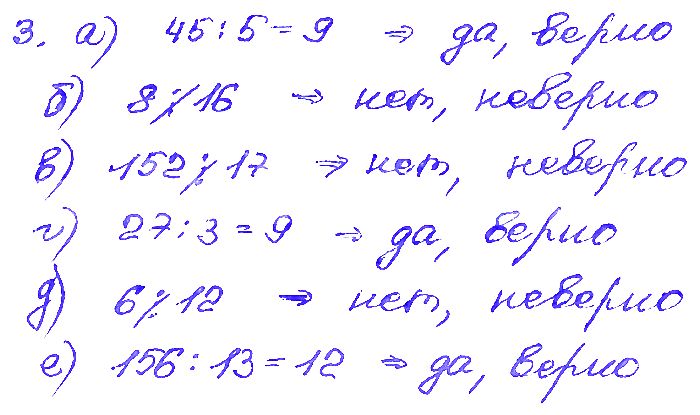 3. а) 45 : 5 = 9 ⇒ да, верно
б) 8 ⁒ 16 ⇒ нет, неверно
в) 152 ⁒ 17 ⇒ нет, неверно
г) 27 : 3 = 9 ⇒ да, верно
д) 6 ⁒ 12 ⇒ нет, неверно
е) 156 : 13 = 12 ⇒ да, верно